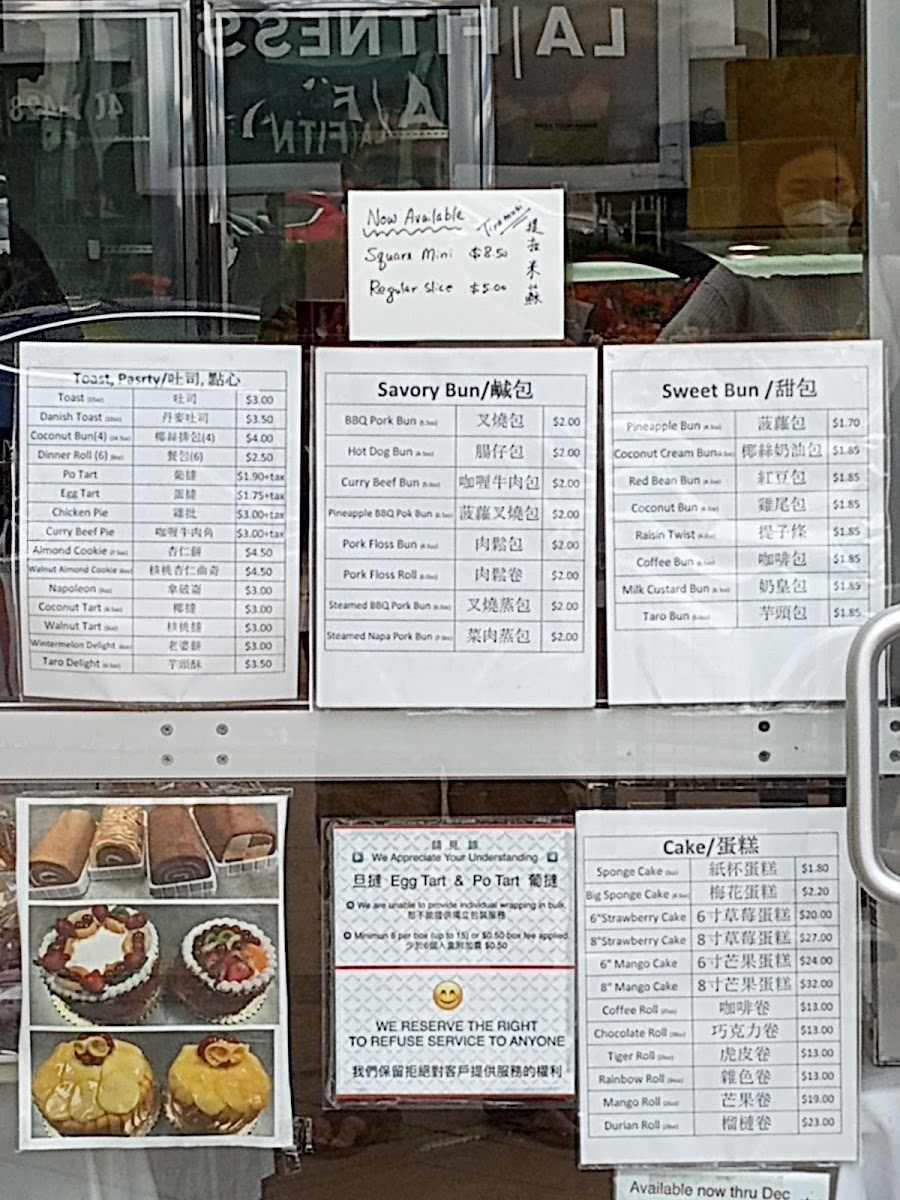 LA|FITNESS
Now Available Tiramisu 提拉米蘇
Square Mini $8.50
Regular Slice $5.00
Toast, Pasrty/吐司, 點心
Toast 吐司 $3.00
Danish Toast 丹麥吐司 $3.50
Coconut Bun(4) 椰絲排包(4) $4.00
Dinner Roll (6) 餐包(6) $2.50
Po Tart 葡撻 $1.90+tax
Egg Tart 蛋撻 $1.75+tax
Chicken Pie 雞批 $3.00+tax
Curry Beef Pie 咖喱牛肉角 $3.00+tax
Almond Cookie 杏仁餅 $4.50
Walnut Almond Cookie 核桃杏仁曲奇 $4.50
Napoleon 拿破崙 $3.00
Coconut Tart 椰撻 $3.00
Walnut Tart 核桃撻 $3.00
Wintermelon Delight 老婆餅 $3.00
Taro Delight 芋頭酥 $3.50
Savory Bun/鹹包
BBQ Pork Bun 叉燒包 $2.00
Hot Dog Bun 腸仔包 $2.00
Curry Beef Bun 咖喱牛肉包 $2.00
Pineapple BBQ Pok Bun 菠蘿叉燒包 $2.00
Pork Floss Bun 肉鬆包 $2.00
Pork Floss Roll 肉鬆卷 $2.00
Steamed BBQ Pork Bun 叉燒蒸包 $2.00
Steamed Napa Pork Bun 菜肉蒸包 $2.00
Sweet Bun /甜包
Pineapple Bun 菠蘿包 $1.70
Coconut Cream Bun 椰絲奶油包 $1.85
Red Bean Bun 紅豆包 $1.85
Coconut Bun 雞尾包 $1.85
Raisin Twist 提子條 $1.85
Coffee Bun 咖啡包 $1.85
Milk Custard Bun 奶皇包 $1.85
Taro Bun 芋頭包 $1.85
請見諒
We Appreciate Your Understanding
旦撻 Egg Tart & Po Tart 葡撻
We are unable to provide individual wrapping in bulk.
恕不能提供獨立包裝服務
Minimun 6 per box (up to 15) or $0.50 box fee applied.
少於6個入盒附加費 $0.50
WE RESERVE THE RIGHT
TO REFUSE SERVICE TO ANYONE
我們保留拒絕對客戶提供服務的權利
Cake/蛋糕
Sponge Cake 紙杯蛋糕 $1.80
Big Sponge Cake 梅花蛋糕 $2.20
6"Strawberry Cake 6寸草莓蛋糕 $20.00
8"Strawberry Cake 8寸草莓蛋糕 $27.00
6" Mango Cake 6寸芒果蛋糕 $24.00
8" Mango Cake 8寸芒果蛋糕 $32.00
Coffee Roll 咖啡卷 $13.00
Chocolate Roll 巧克力卷 $13.00
Tiger Roll 虎皮卷 $13.00
Rainbow Roll 雜色卷 $13.00
Mango Roll 芒果卷 $19.00
Durian Roll 榴槤卷 $23.00
Available now thru Dec